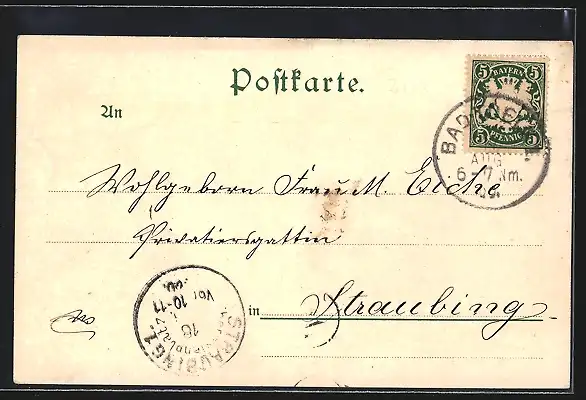 Postkarte.
5 BAYERN 5
5 PFENNIG 5
BAD
AUG
6-7 Nm.
An
Wohlgeborn Frau M. Eiche
Privatiersgattin
in Straubing.
STRAUBING 1.
18
Vor 10-11
00.